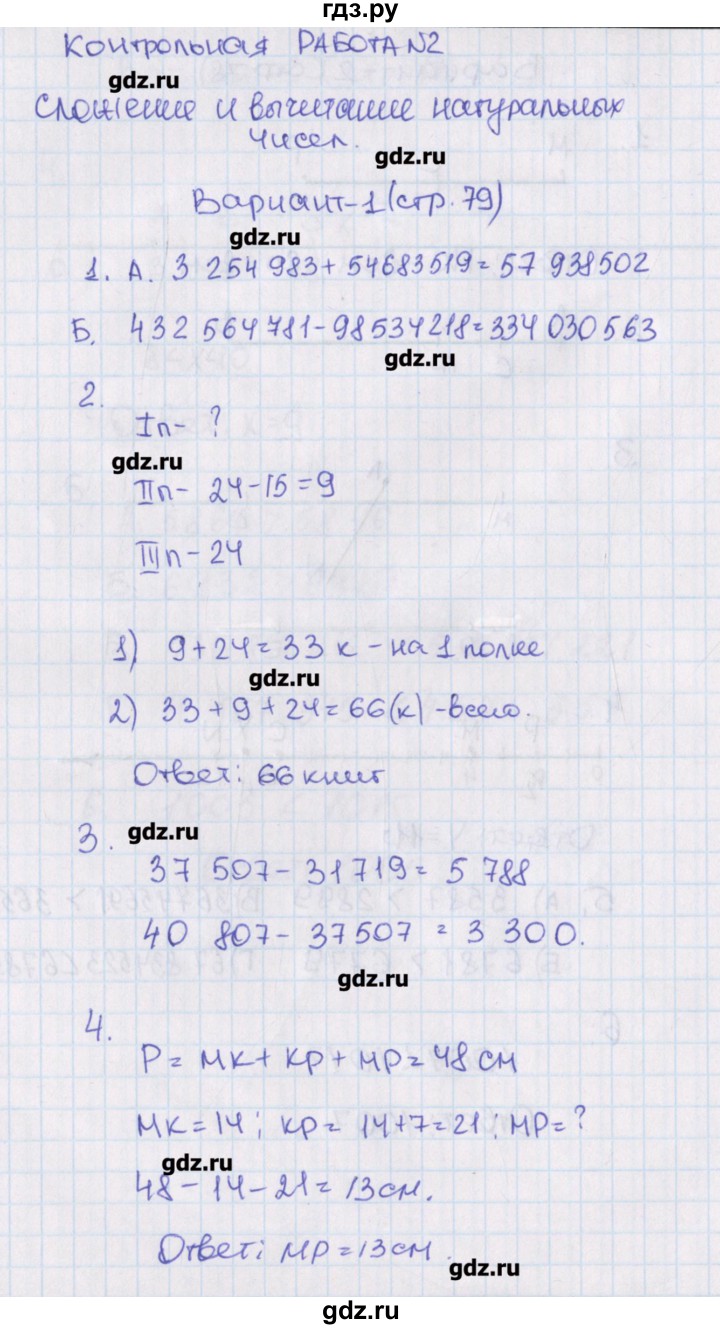 гдз.ру
Контрольная РАБОТА N2
gdz.ru
Сложение и вычитание натуральных
чисел.
gdz.ru
Вариант-1 (стр. 79)
gdz.ru
1. А. 3 254 983 + 54683519 = 57 938502
Б. 432 564 781 - 98534218 = 334 030 563
gdz.ru
2.
I п - ?
gdz.ru
II п - 24 - 15 = 9
III п - 24
1) 9 + 24 = 33 к - на 1 полке
gdz.ru
2) 33 + 9 + 24 = 66 (к) - всего.
Ответ: 66 книг
3. gdz.ru
37 507 - 31719 = 5 788
40 807 - 37507 = 3 300.
gdz.ru
4.
P = МК + КР + МР = 48 см
МК = 14; КР = 14 + 7 = 21; МР = ?
gdz.ru
48 - 14 - 21 = 13 см.
Ответ: МР = 13 см.
gdz.ru
gdz.ru